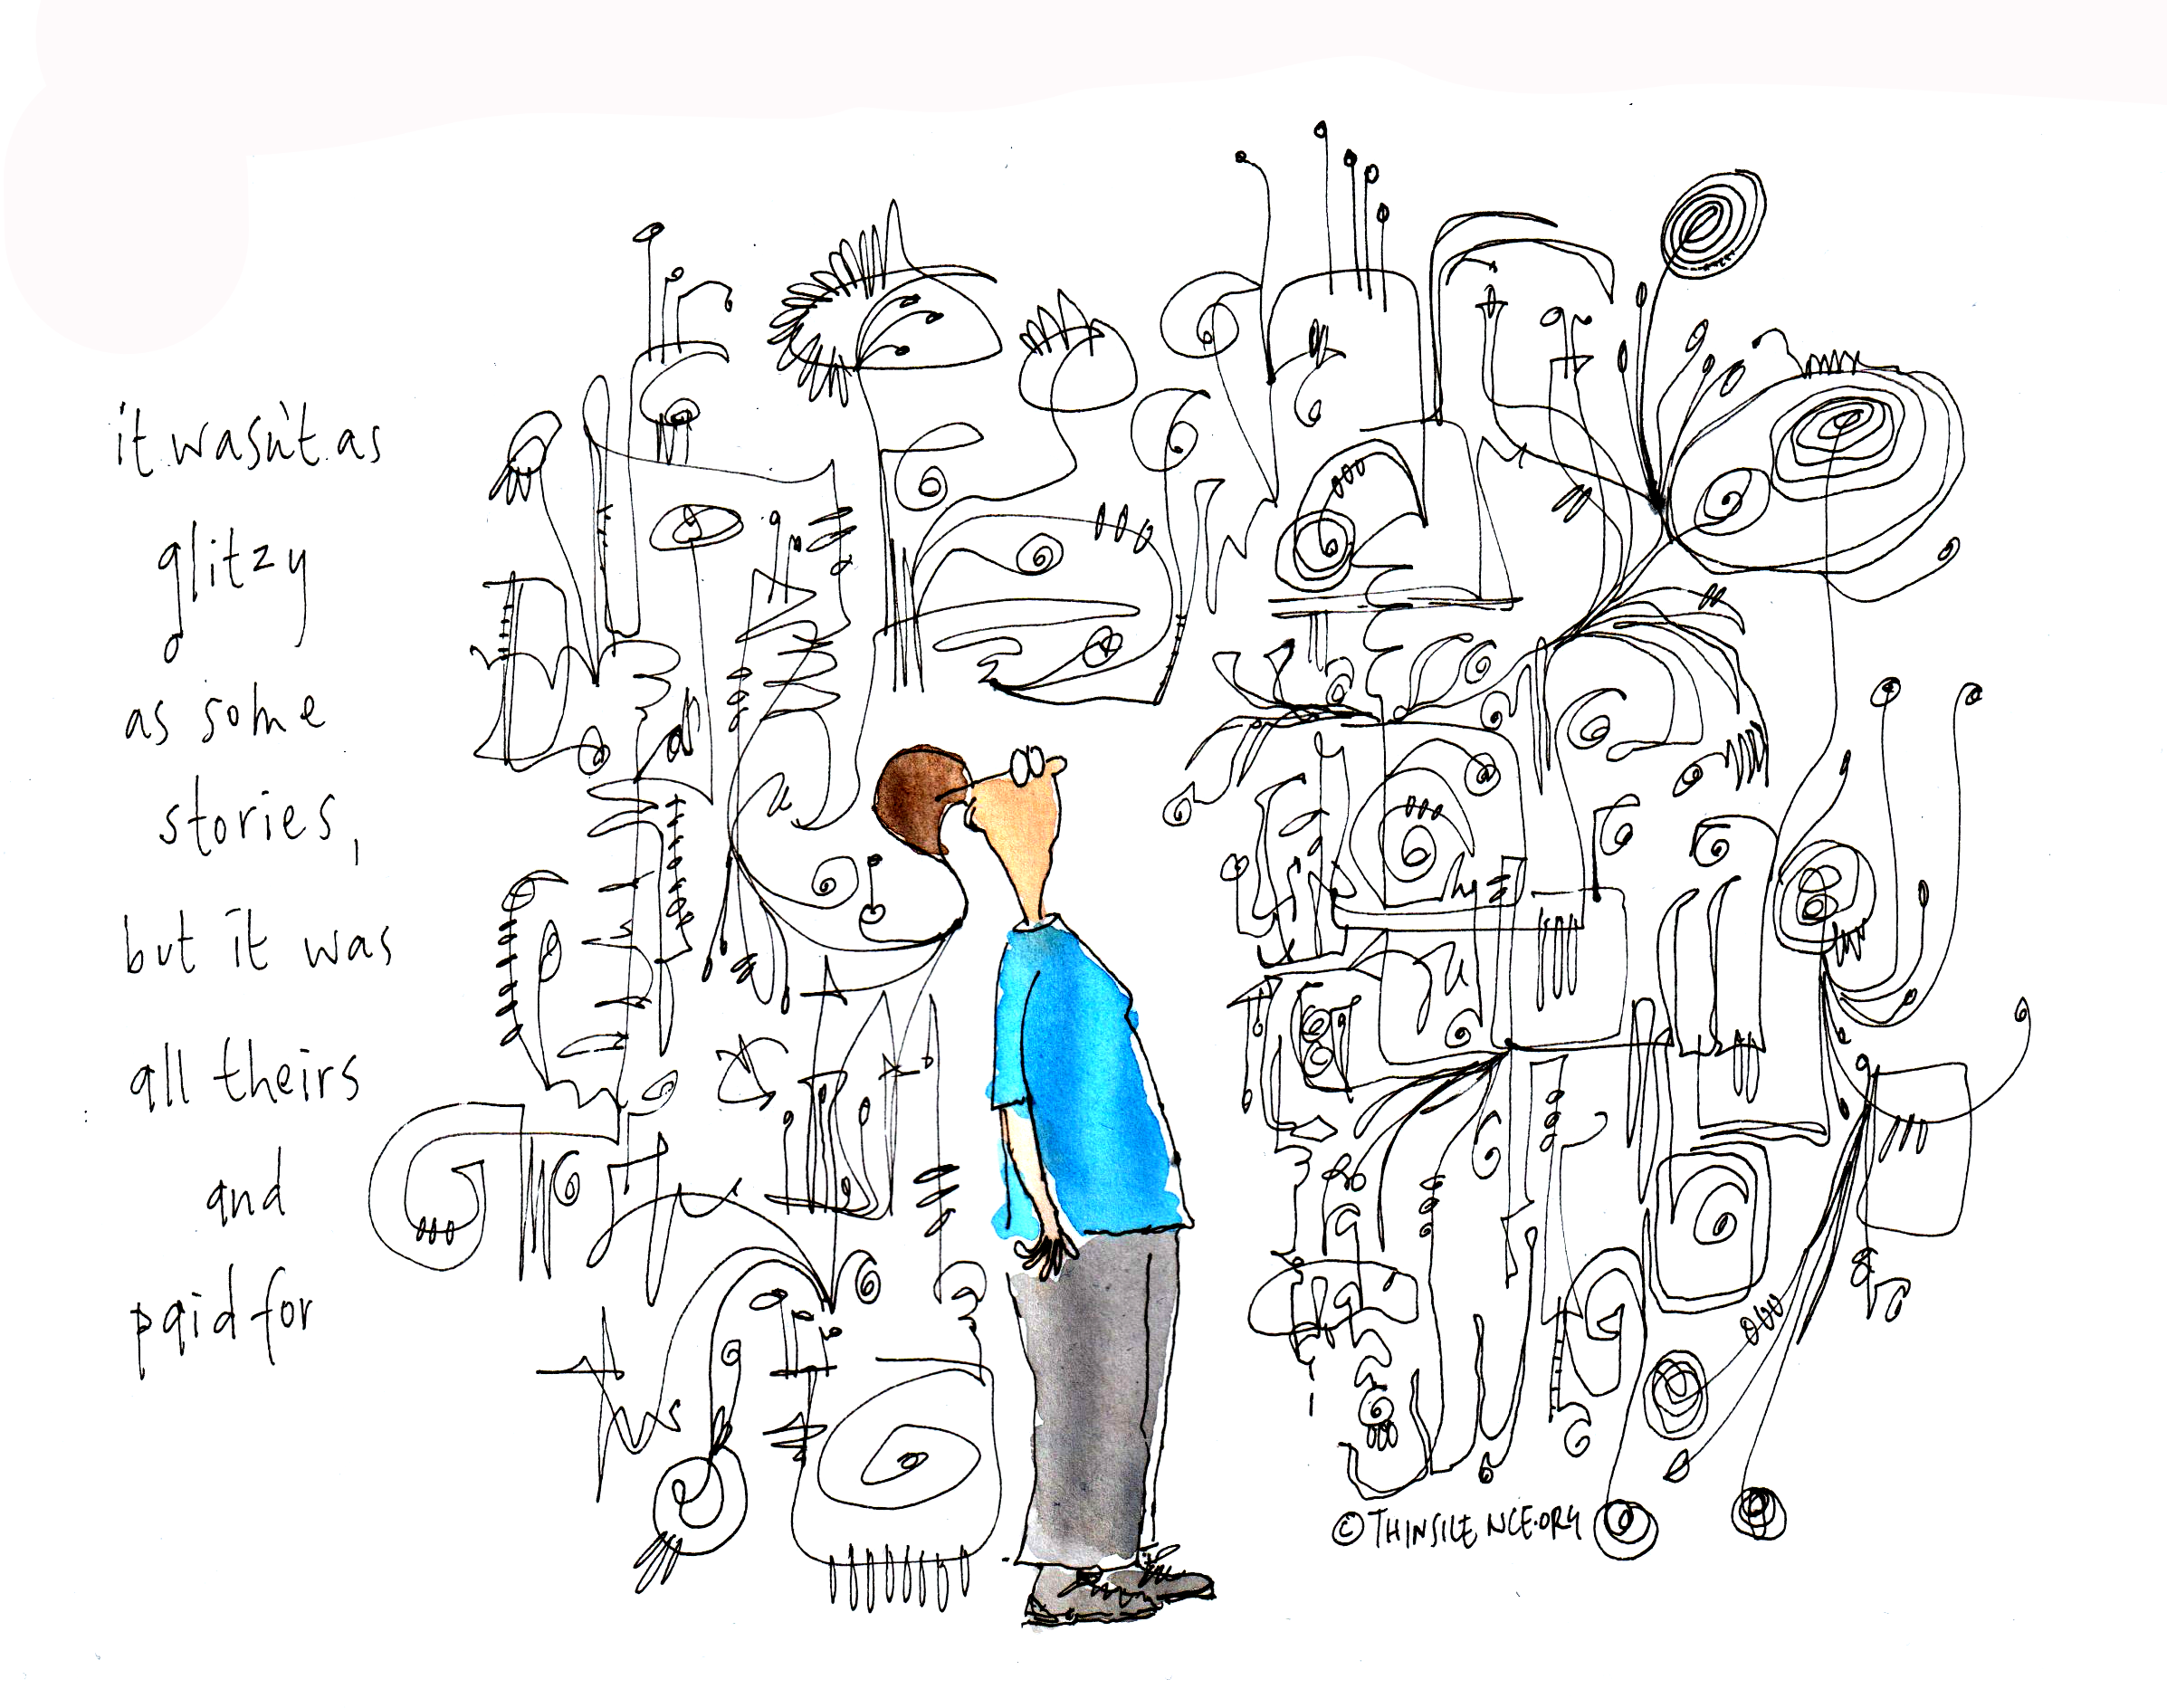 it wasn't as
glitzy
as some
stories,
but it was
all theirs
and
paid for
© THINSILENCE.ORG